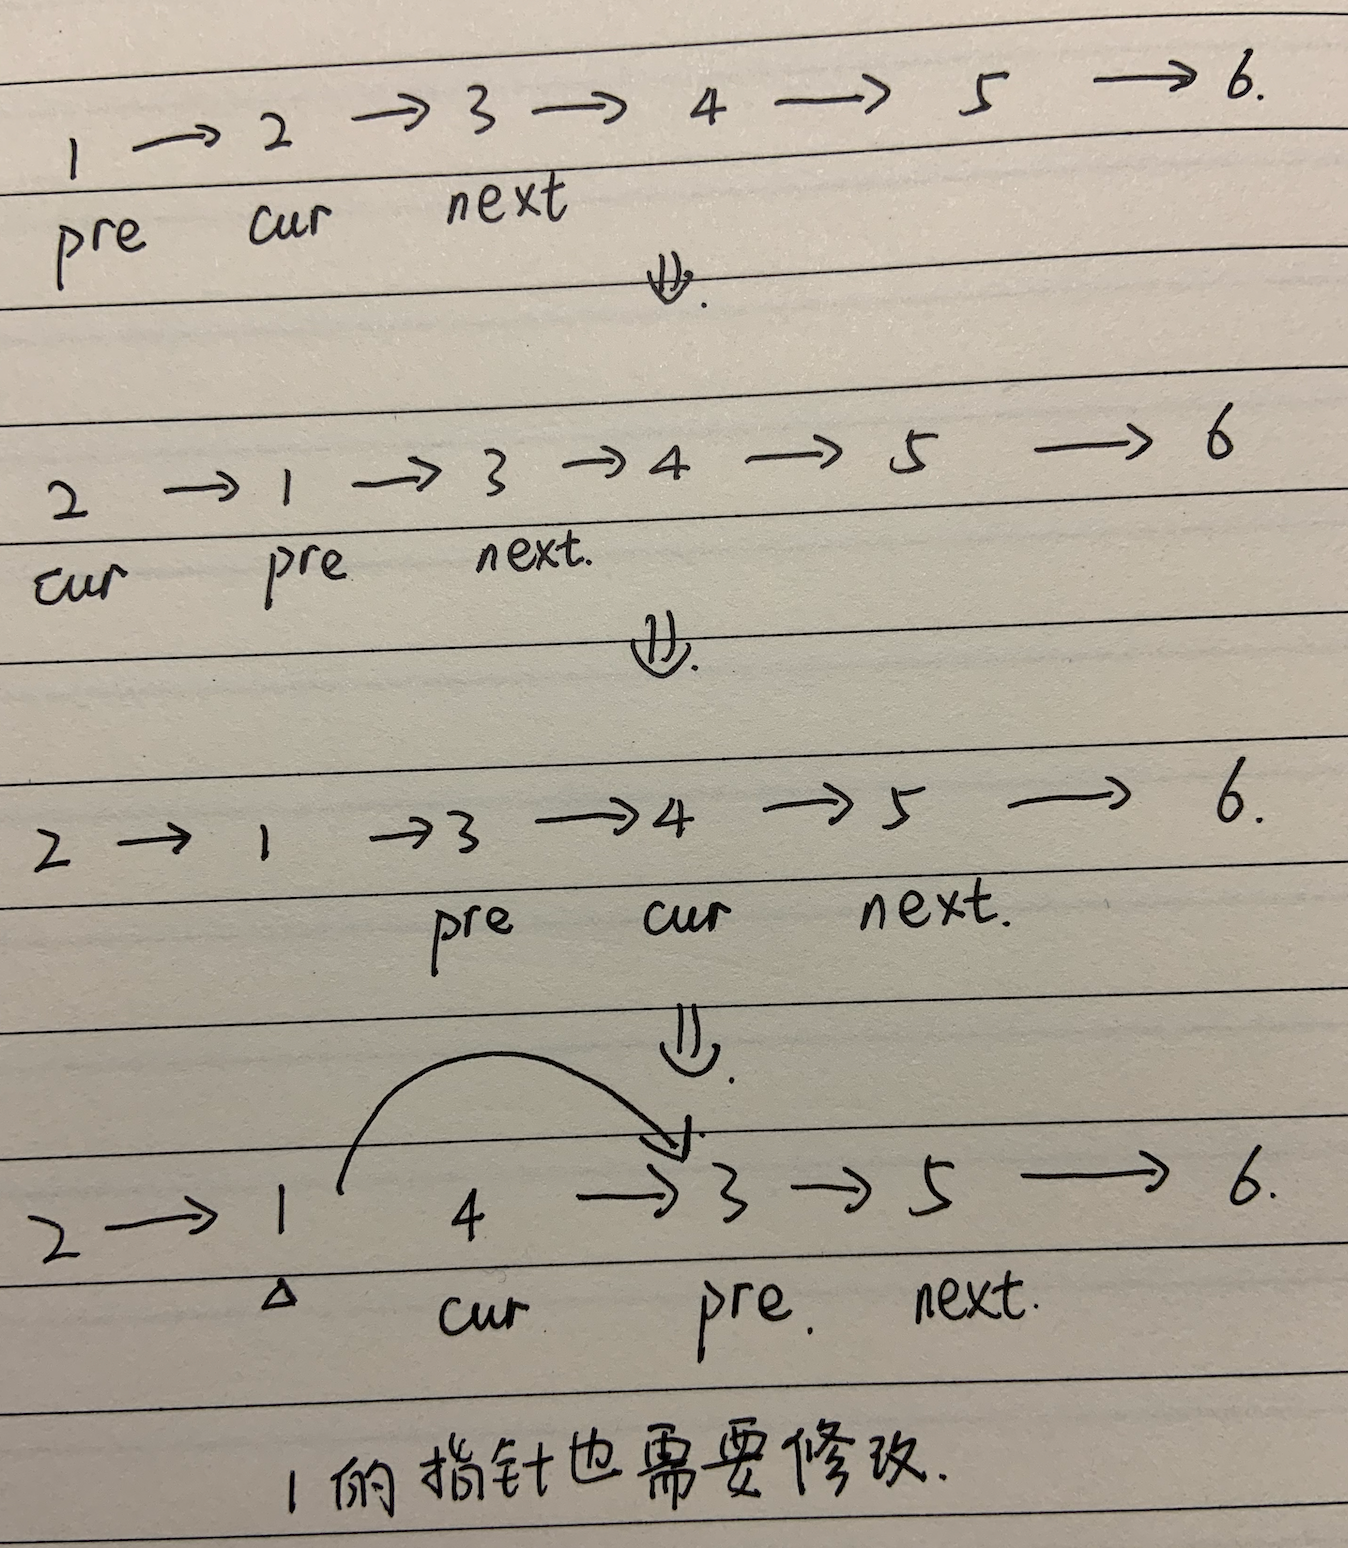 1 → 2 → 3 → 4 → 5 → 6.
pre cur next
⇓.
2 → 1 → 3 → 4 → 5 → 6
cur pre next.
⇓.
2 → 1 → 3 → 4 → 5 → 6.
pre cur next.
⇓.
2 → 1 4 → 3 → 5 → 6.
△ cur pre. next.
1的指针也需要修改.